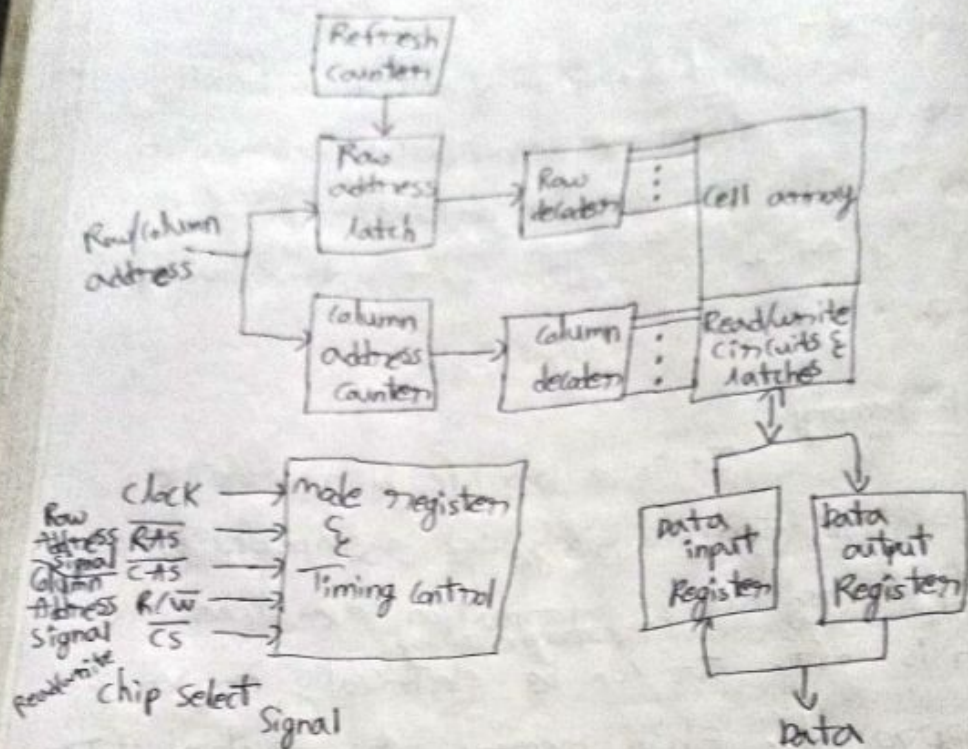 Refresh
counter
Row
address
latch
Row
decoder
Cell array
Row/column
address
Column
address
counter
column
decoder
Read/write
circuits &
latches
Clock
Row
Address
Signal
RAS
Column
Address
Signal
CAS
R/W
CS
Read/write
Chip select
Signal
mode register
&
Timing control
Data
input
Register
Data
output
Register
Data